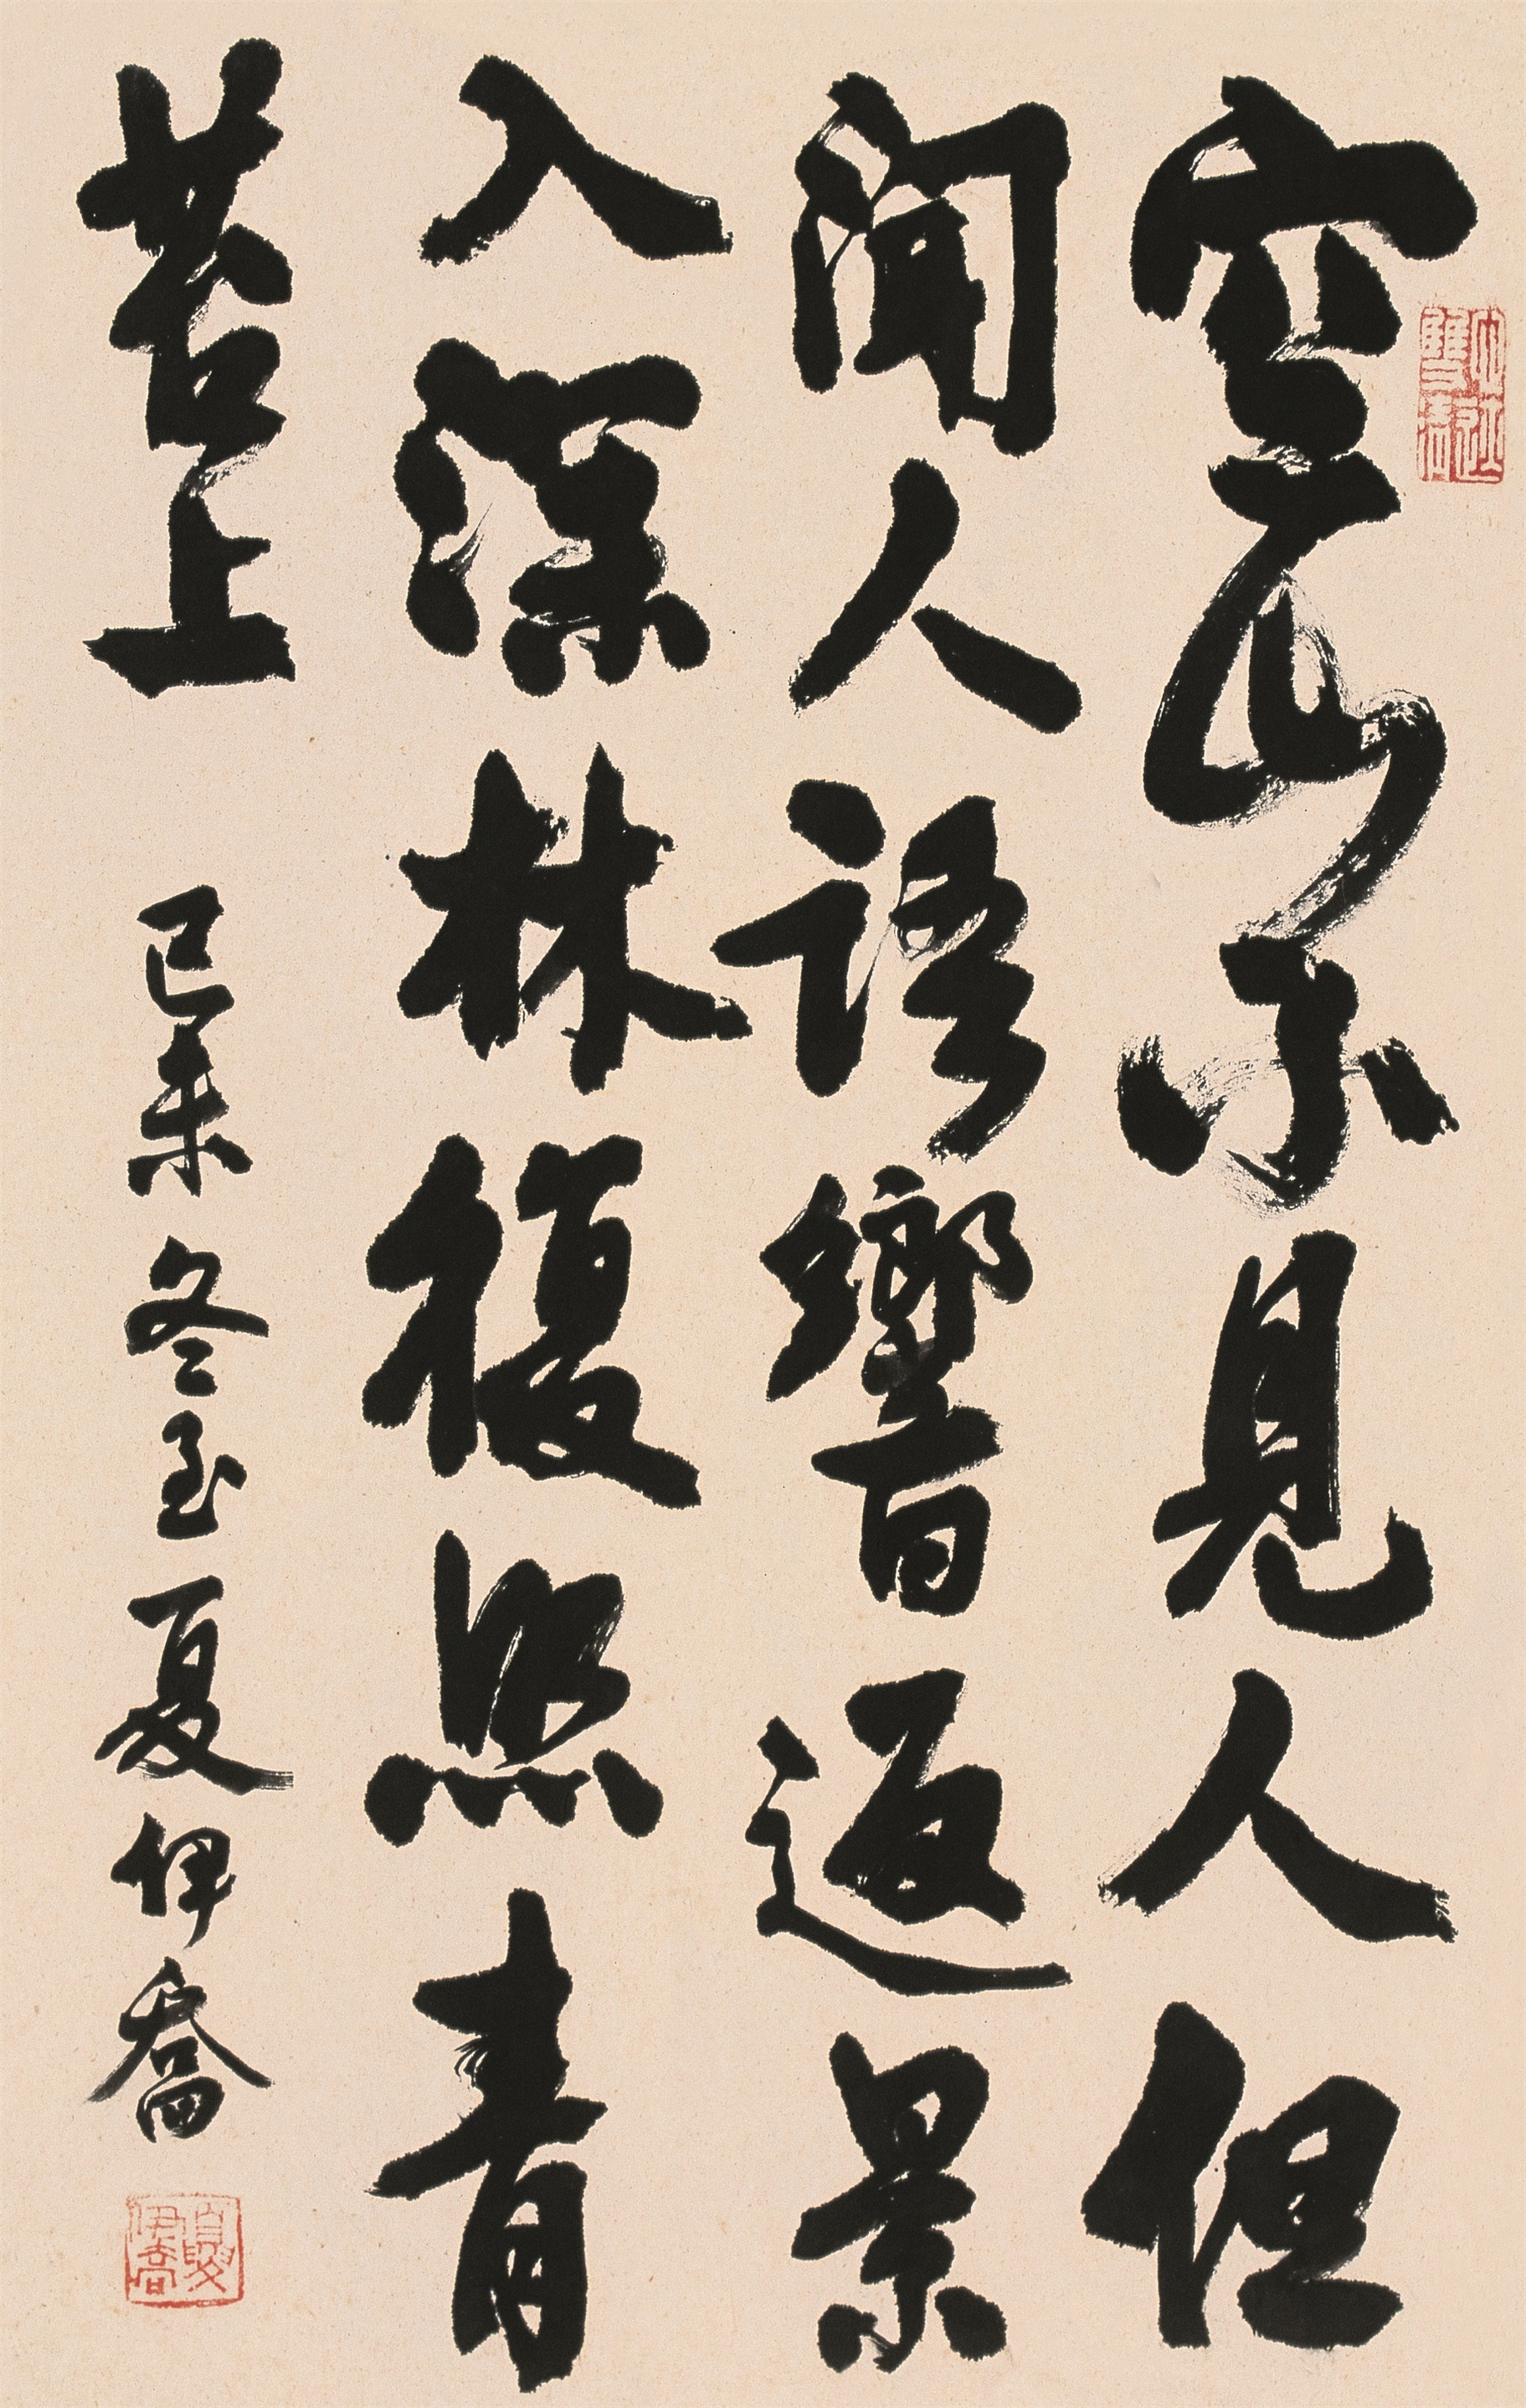 空山不見人但
聞人語響返景
入深林復照青
苔上
己未冬至夏伊喬
夏伊喬